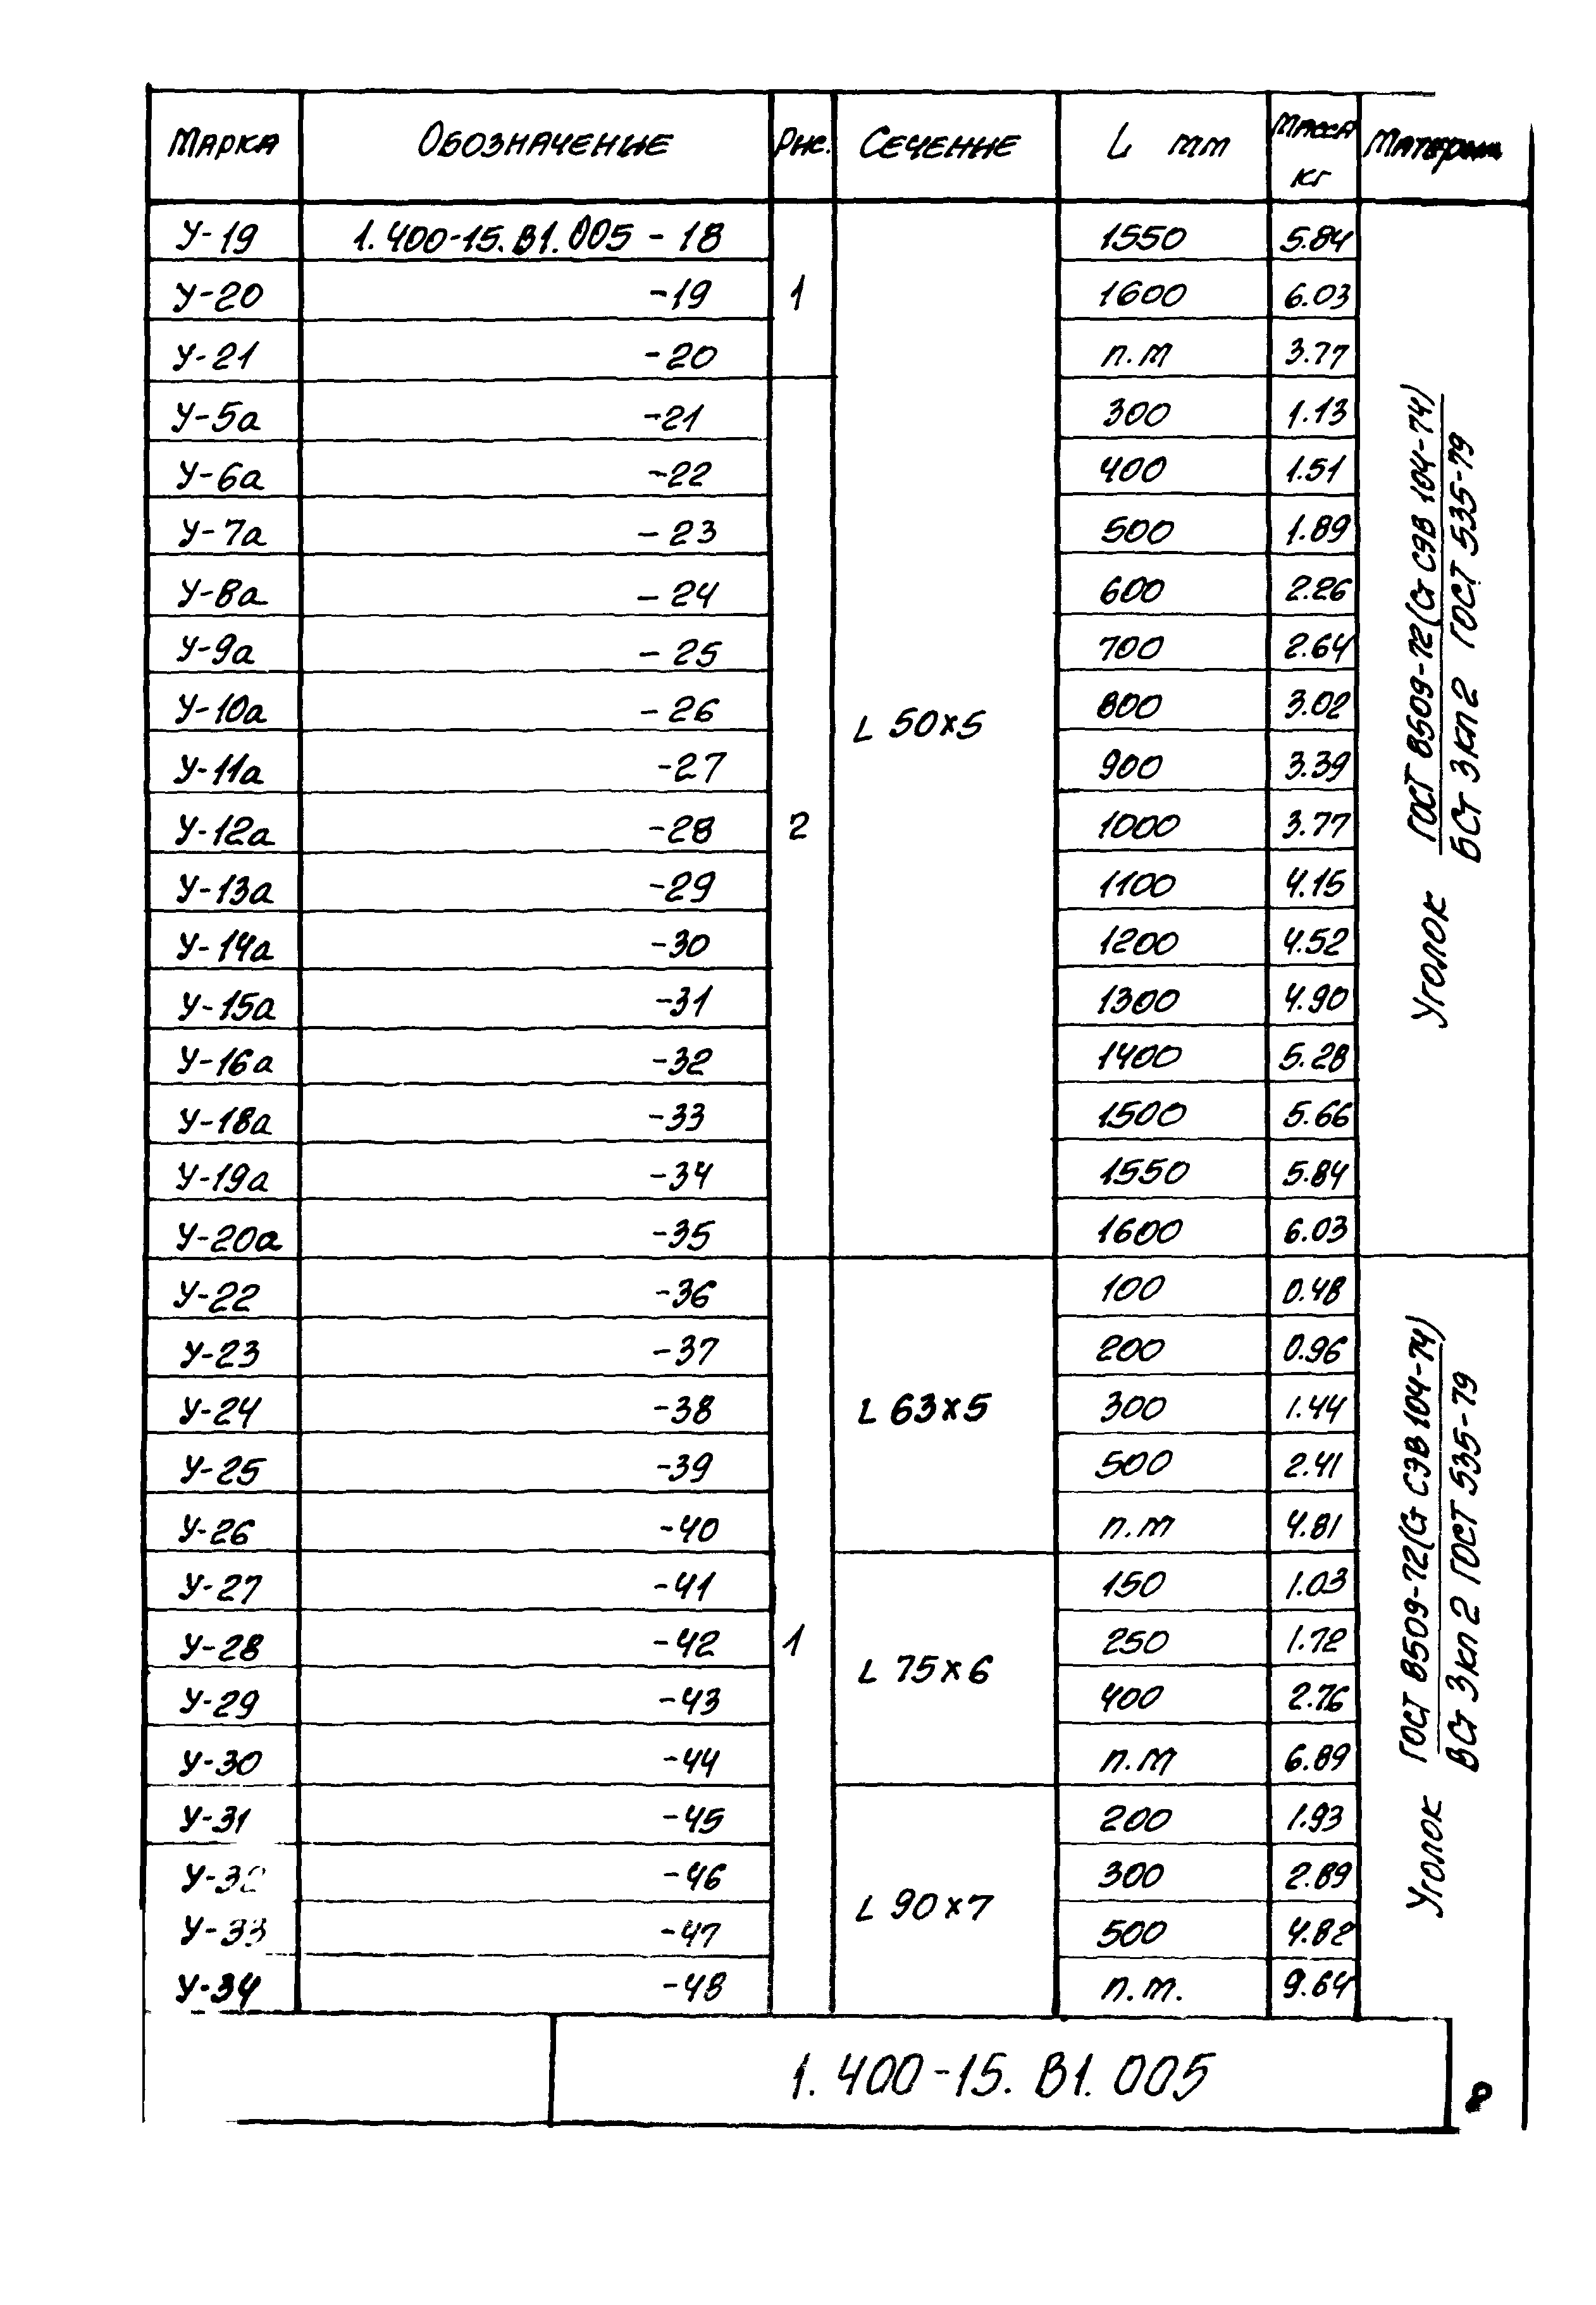 Марка Обозначение Рис. Сечение L мм Масса кг Материал
У-19 1.400-15.В1.005-18 1550 5.84
У-20 -19 1 1600 6.03
У-21 -20 п.м 3.77
У-5а -21 300 1.13
У-6а -22 400 1.51
У-7а -23 500 1.89
У-8а -24 600 2.26
У-9а -25 700 2.64
У-10а -26 L 50x5 800 3.02
У-11а -27 900 3.39
У-12а -28 2 1000 3.77
У-13а -29 1100 4.15
У-14а -30 1200 4.52
У-15а -31 1300 4.90
У-16а -32 1400 5.28
У-18а -33 1500 5.66
У-19а -34 1550 5.84
У-20а -35 1600 6.03
Уголок ГОСТ 8509-72 (Ст СЭВ 104-74)
БСт 3кп2 ГОСТ 535-79
У-22 -36 100 0.48
У-23 -37 200 0.96
У-24 -38 L 63x5 300 1.44
У-25 -39 500 2.41
У-26 -40 п.м 4.81
У-27 -41 150 1.03
У-28 -42 1 L 75x6 250 1.72
У-29 -43 400 2.76
У-30 -44 п.м 6.89
У-31 -45 200 1.93
У-32 -46 L 90x7 300 2.89
У-33 -47 500 4.82
У-34 -48 п.м. 9.64
Уголок ГОСТ 8509-72 (Ст СЭВ 104-74)
ВСт 3кп2 ГОСТ 535-79
1.400-15.В1.005
8